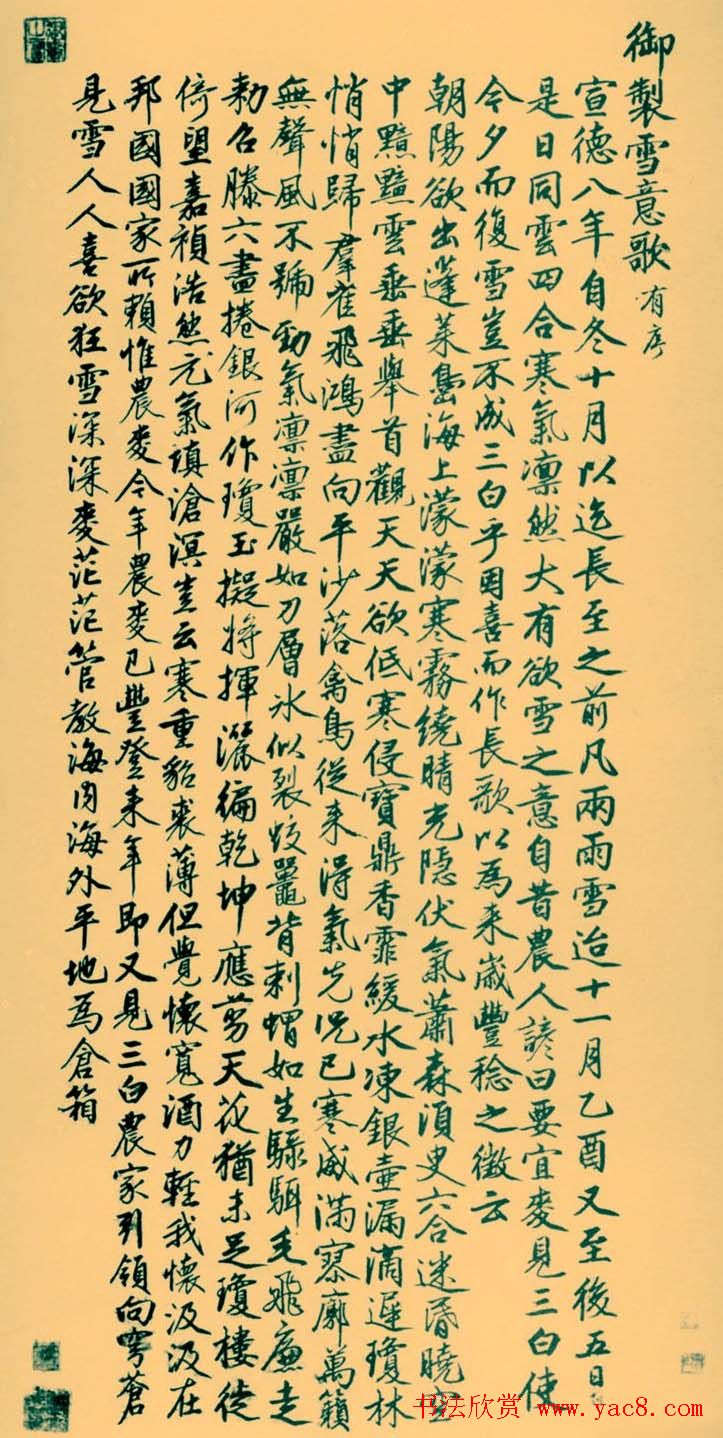 御製雪意歌 有序
宣德八年自冬十月以迄長至之前凡兩雨雪迨十一月乙酉又至後五日
是日同雲四合寒氣凛然大有欲雪之意自昔農人諺曰要宜麥見三白使
今夕而復雪豈不成三白乎因喜而作長歌以為來歲豐稔之徵云
朝陽欲出蓬萊島海上濛濛寒霧繞晴光隱伏氣蕭森須臾六合迷昏曉空
中黯黯雲垂垂舉首觀天天欲低寒侵寶鼎香霏緩水凍銀壺漏滴遲瓊林
悄悄歸羣雀飛鴻盡向平沙落禽鳥從來得氣先況已寒威滿寥廓萬籟
無聲風不號勁氣凛凛嚴如刀層冰似裂蛟鼉背刺蝟如生騄駬毛飛廉走
勅召滕六盡捲銀河作瓊玉擬將揮灑徧乾坤應剪天花猶未足瓊樓徙
倚望嘉禎浩然元氣塡滄溟豈云寒重貂裘薄但覺懷寬酒力輕我懷汲汲在
邦國國家所賴惟農麥今年農麥已豐登来年即又見三白農家引領向穹蒼
見雪人人喜欲狂雪深深麥茫茫管教海内海外平地為倉箱
书法欣赏 www.yac8.com